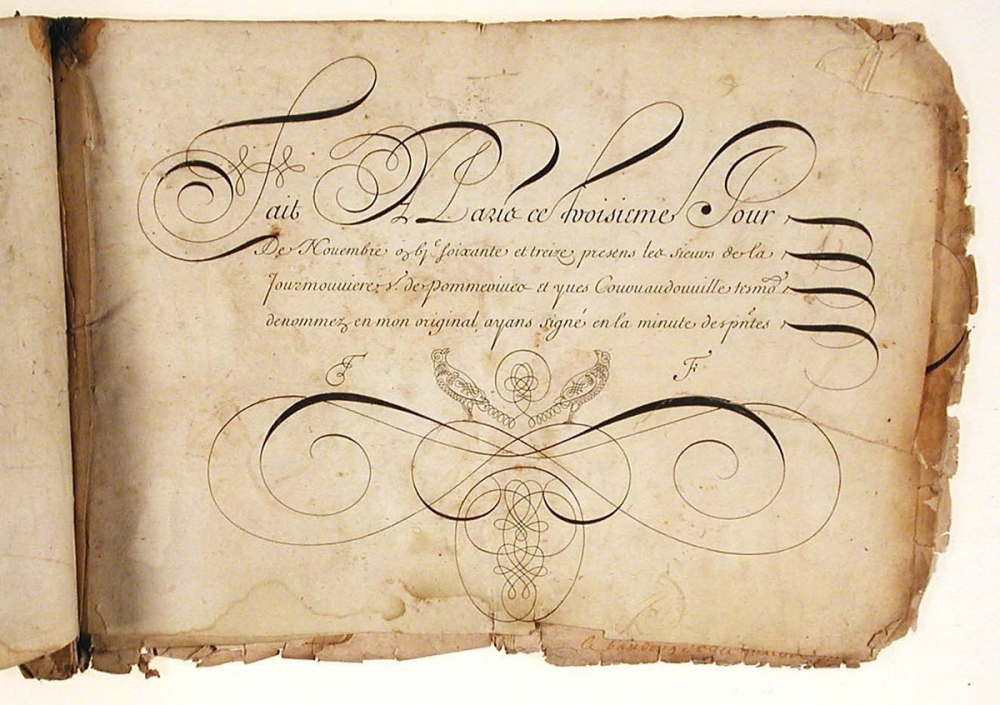 Fait A Paris ce troisieme Jour
De Novembre g bjc soixante et treize, presens les sieurs de la
Jourmouuiere, Sr. de Pommeviues et yues Couvuaudouuille tesmos
denommez en mon original, ayans signé en la minute des pntes
F F